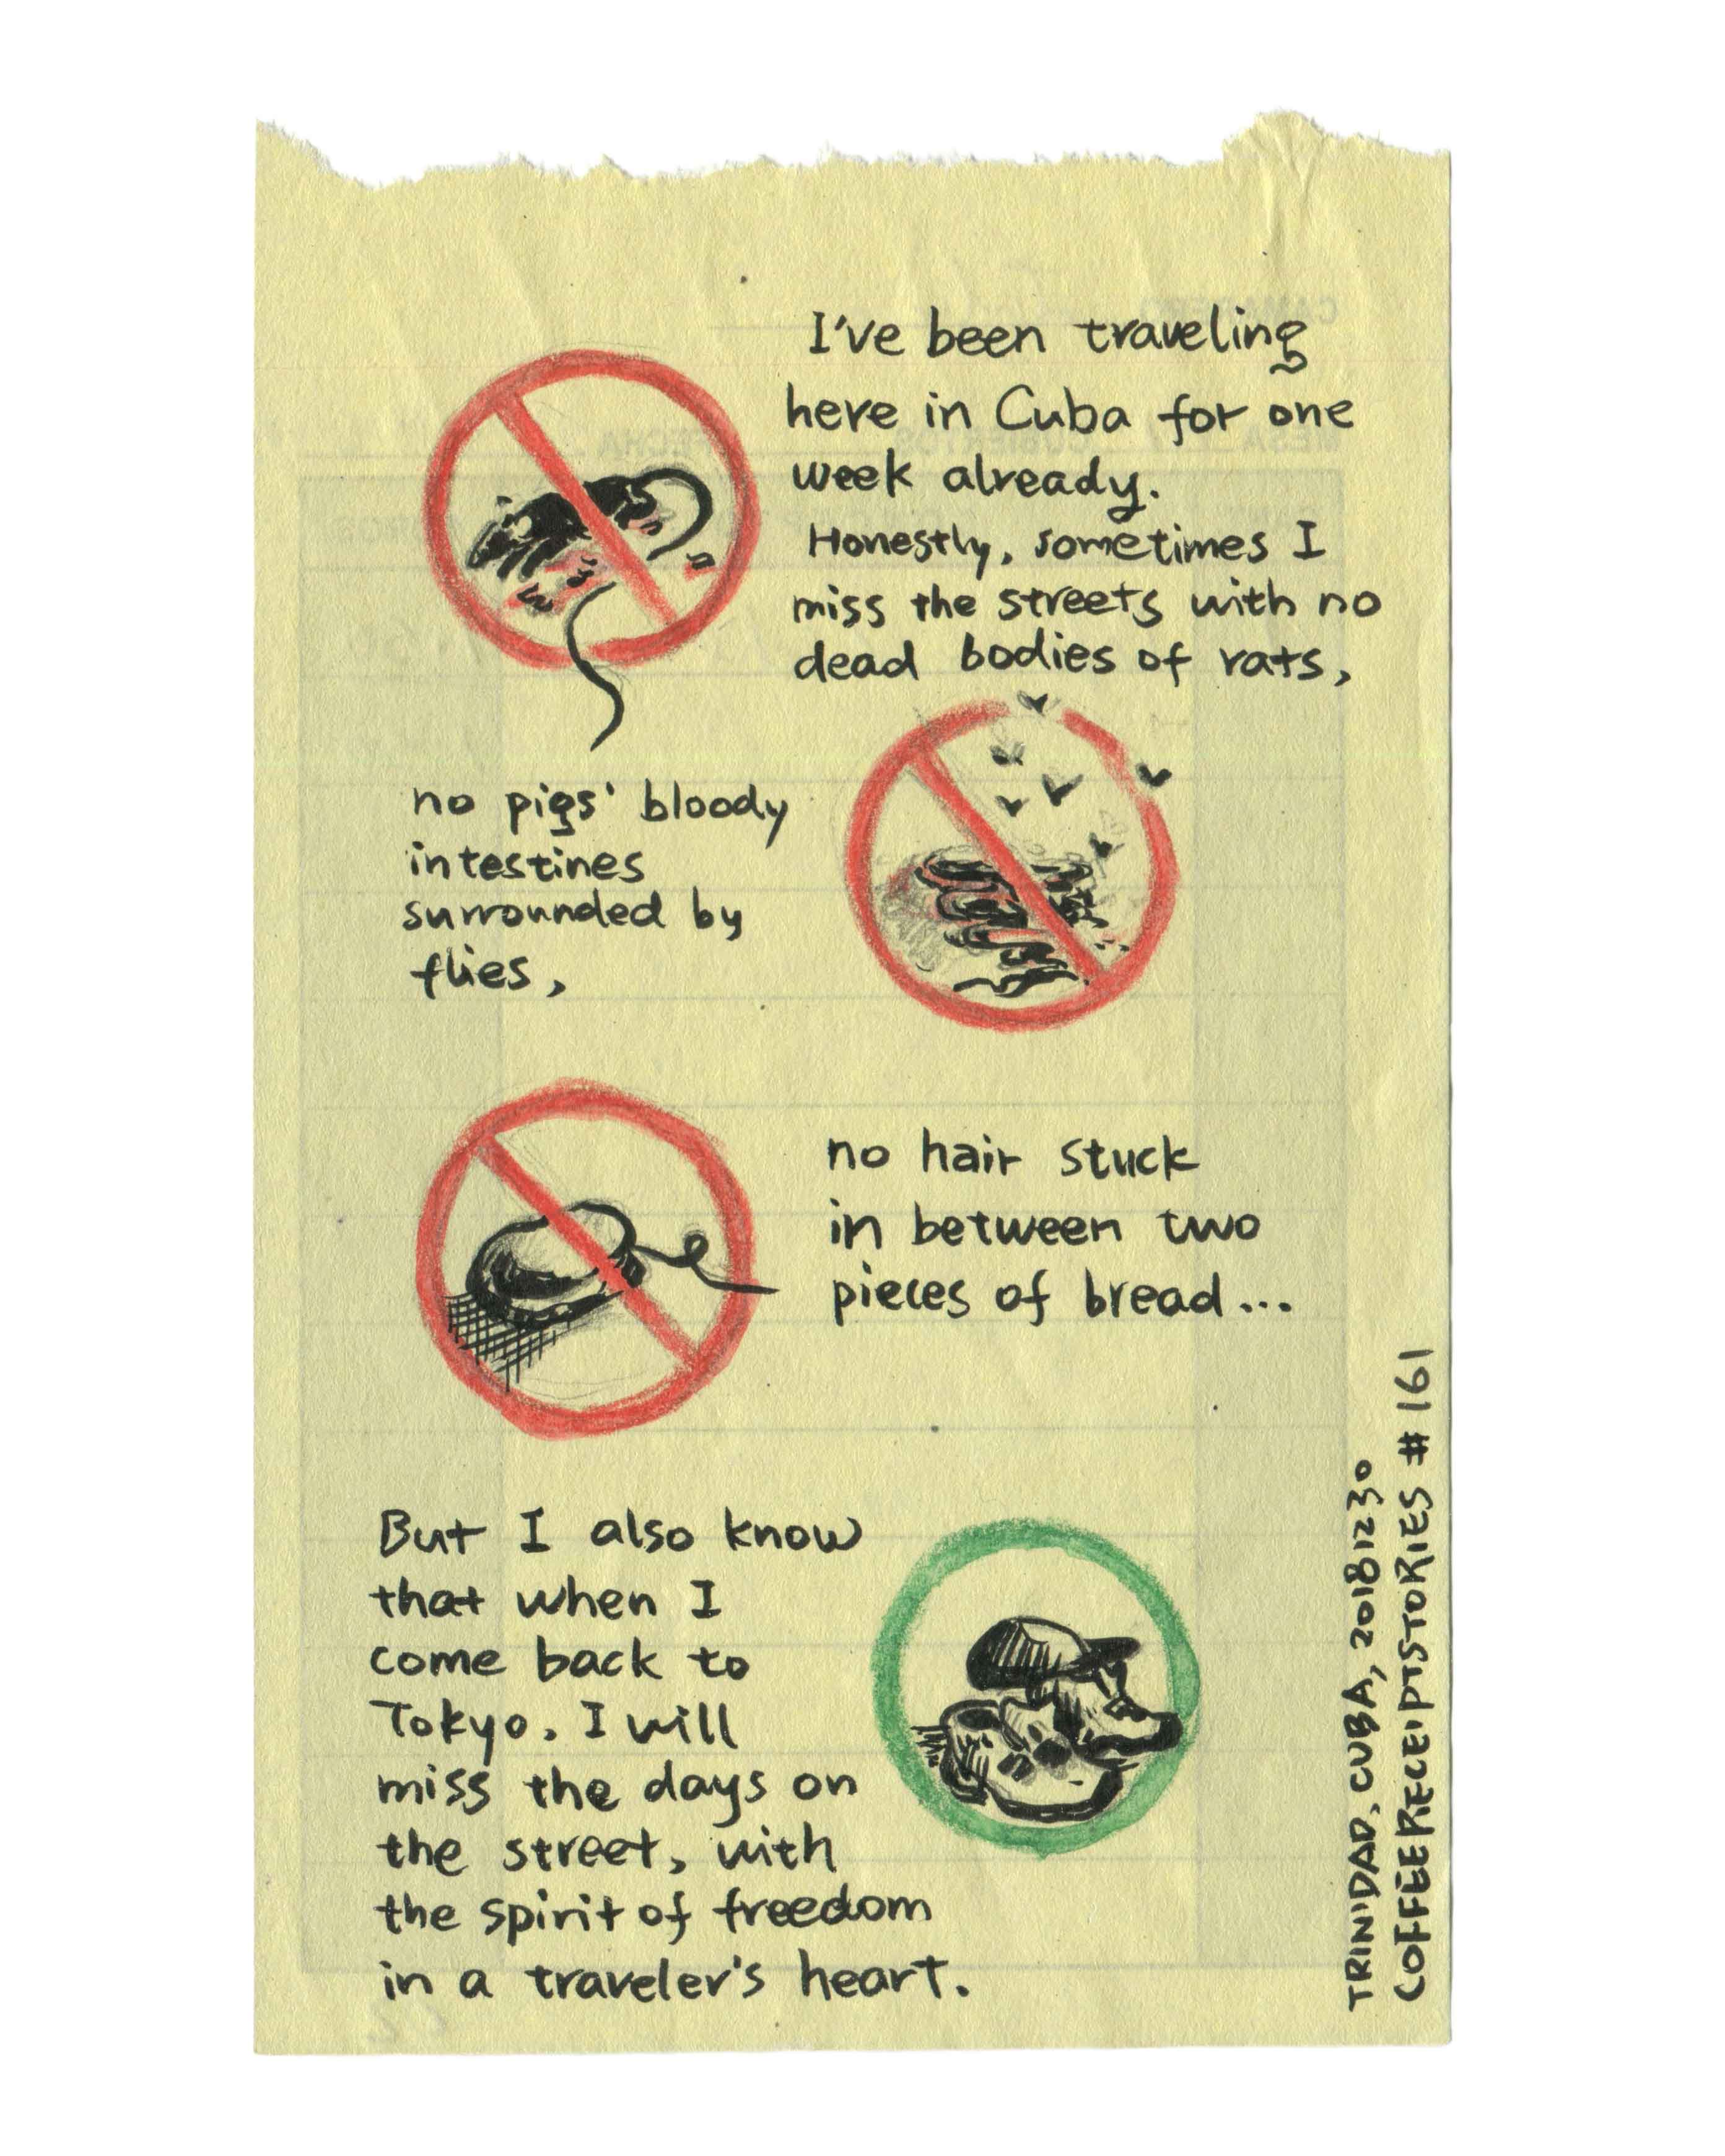 I've been traveling
here in Cuba for one
week already.
Honestly, sometimes I
miss the streets with no
dead bodies of rats,
no pigs' bloody
intestines
surrounded by
flies,
no hair stuck
in between two
pieces of bread...
But I also know
that when I
come back to
Tokyo, I will
miss the days on
the street, with
the spirit of freedom
in a traveler's heart.
TRINIDAD, CUBA, 20181230
COFFEERECEIPTSTORIES #161